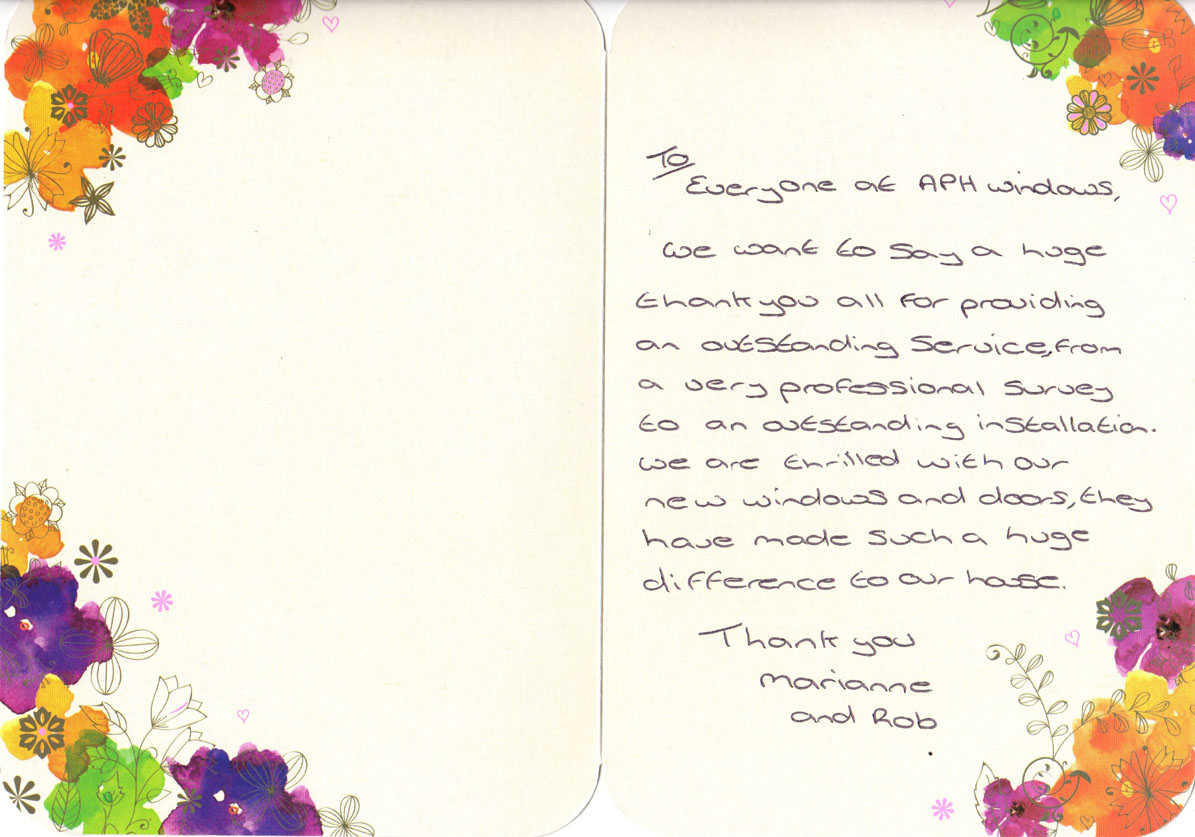 To
Everyone at APH windows,
we want to say a huge
thank you all for providing
an outstanding service, from
a very professional survey
to an outstanding installation.
we are thrilled with our
new windows and doors, they
have made such a huge
difference to our house.
Thank you
Marianne
and Rob